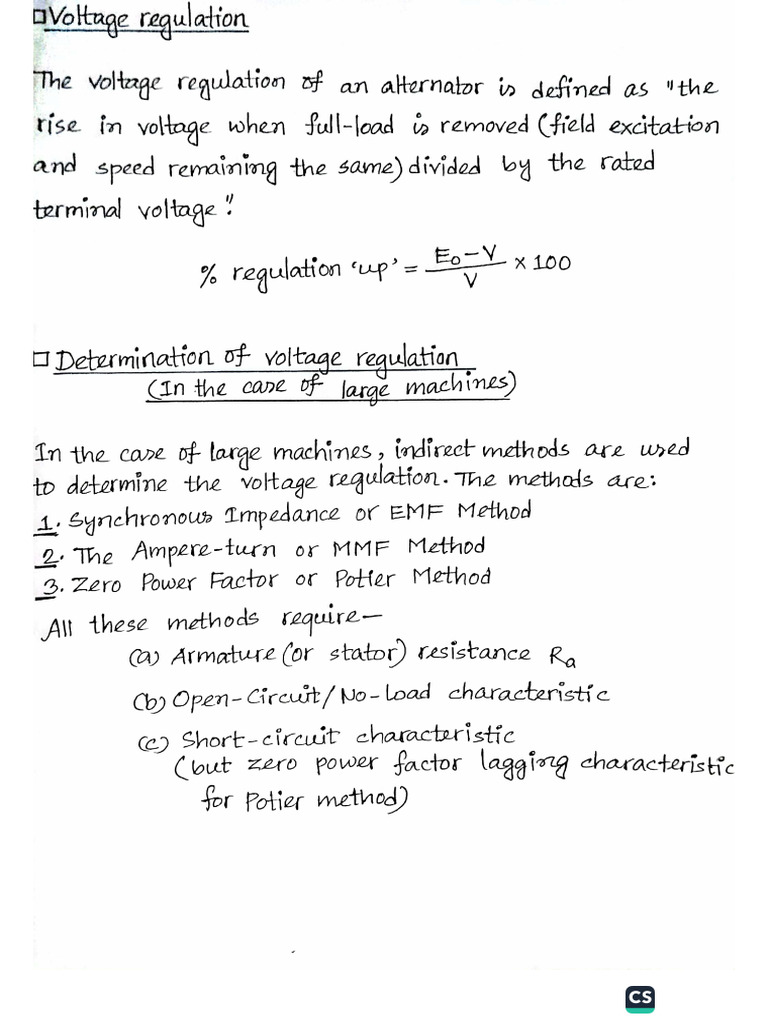 □Voltage regulation
The voltage regulation of an alternator is defined as "the
rise in voltage when full-load is removed (field excitation
and speed remaining the same) divided by the rated
terminal voltage".
% regulation 'up' = E₀-V/V × 100
□ Determination of voltage regulation
(In the case of large machines)
In the case of large machines, indirect methods are used
to determine the voltage regulation. The methods are:
1. Synchronous Impedance or EMF Method
2. The Ampere-turn or MMF Method
3. Zero Power Factor or Potier Method
All these methods require—
(a) Armature (or stator) resistance Ra
(b) Open-Circuit/No-Load characteristic
(c) Short-circuit characteristic
(but zero power factor lagging characteristic
for Potier method)
CS